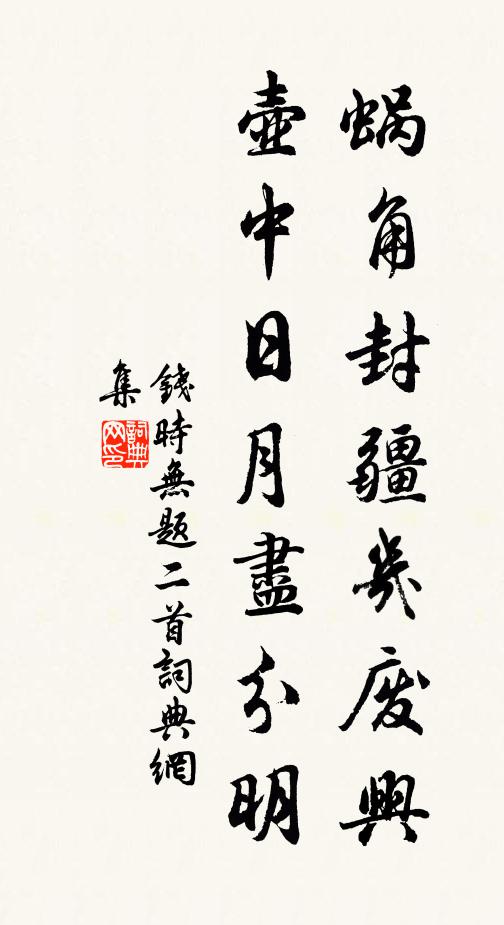 蝸角封疆幾廢興
壺中日月盡分明
錢時無題二首詞典網
集
詞典网印